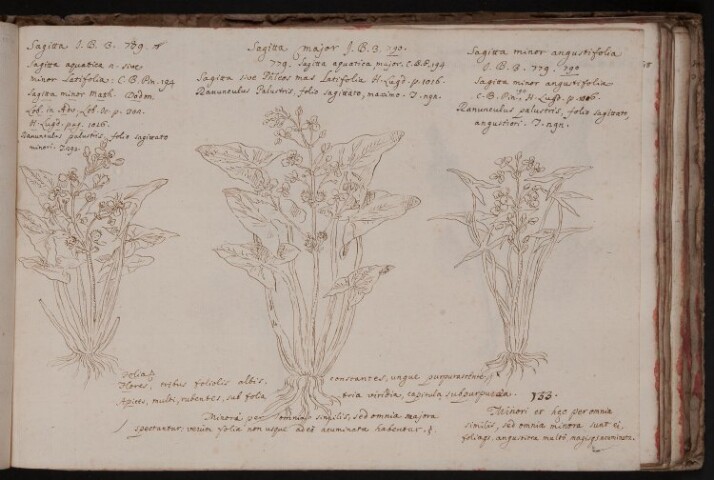 Sagitta J. B. 3. 789.
Sagitta aquatica
minor Latifolia. C. B. Pin. 194
Sagitta minor Math. Dodon.
Lob. in Adv.
H. Lugd. pag. 1016.
Ranunculus palustris, folio sagittato
minori. T.
Sagitta major J. B. 3. 790.
779. Sagitta aquatica, major. C. B. P. 194
Sagitta sive mas Latifolia H. Lugd. p. 1016
Ranunculus Palustris, folio sagittato, maximo.
Sagitta minor angustifolia
J. B. 3. 779. 790
Sagitta minor angustifolia
C. B. Pin. H. Lugd. p. 1016
Ranunculus palustris, folio sagittato,
angustiori.
Flores, tribus foliolis albis, constantes, ungue purpurascente,
Apices, multi, rubentes, sub folia tria viridia, capitula subpurpurea. 133.
Minora per omnia similis, sed omnia majora
spectantur; verum folia non usque adeo acuminata habentur.
Minori et hęc per omnia
similis, sed omnia minora sunt ei,
foliaque angustiora multo, magisque acuminata.